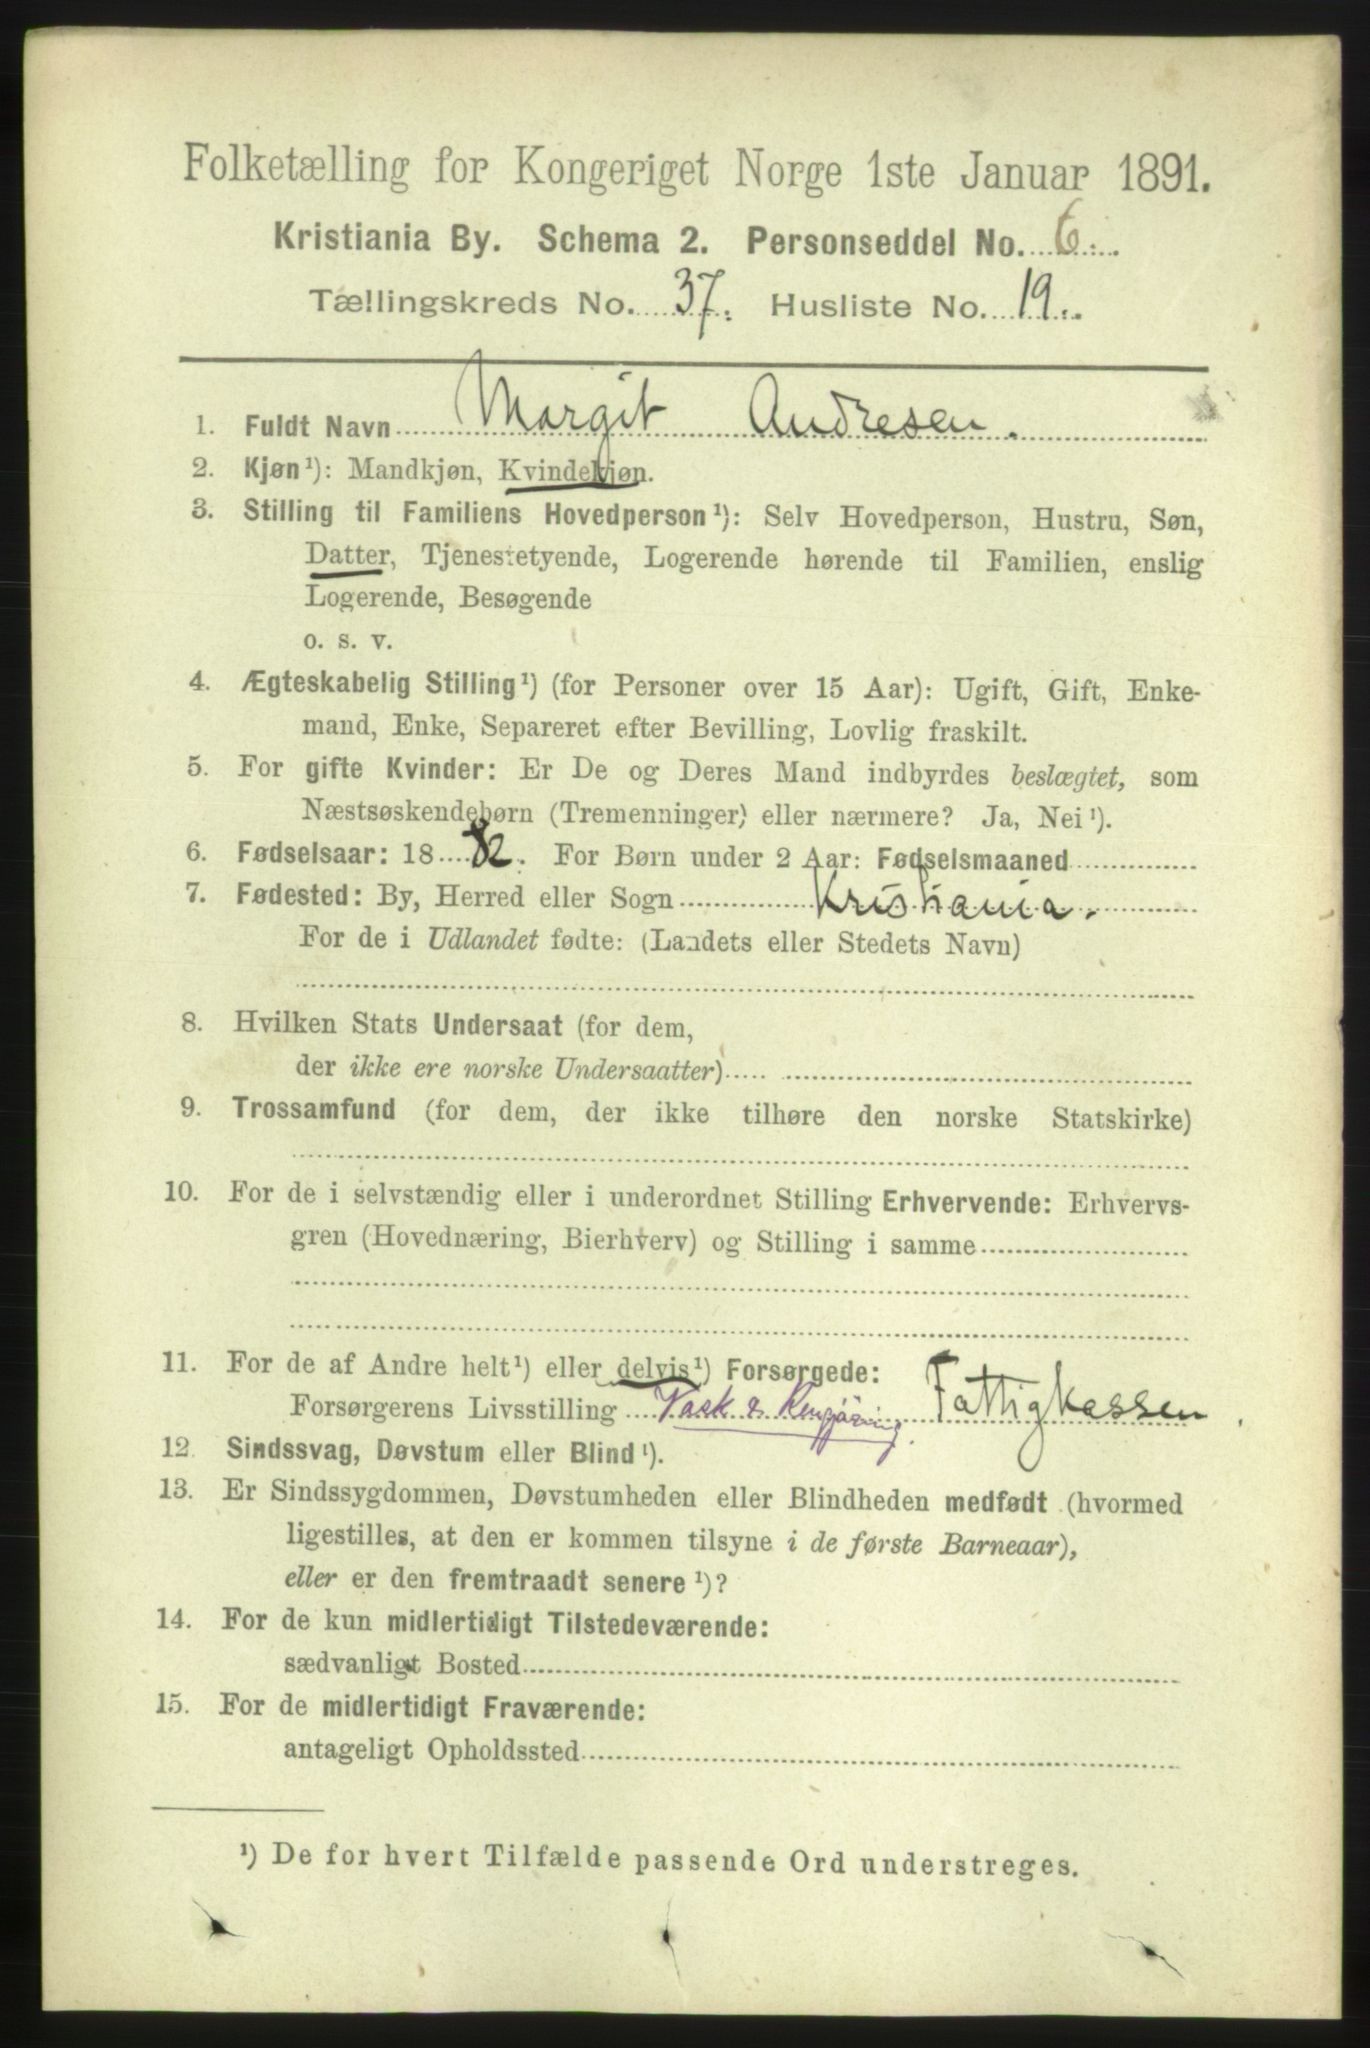 Folketælling for Kongeriget Norge 1ste Januar 1891.
Kristiania By. Schema 2. Personseddel No. 6.
Tællingskreds No. 37. Husliste No. 19.
1. Fuldt Navn Margit Andresen.
2. Kjøn¹): Mandkjøn, Kvindekjøn.
3. Stilling til Familiens Hovedperson¹): Selv Hovedperson, Hustru, Søn,
Datter, Tjenestetyende, Logerende hørende til Familien, enslig
Logerende, Besøgende
o. s. v.
4. Ægteskabelig Stilling¹) (for Personer over 15 Aar): Ugift, Gift, Enke-
mand, Enke, Separeret efter Bevilling, Lovlig fraskilt.
5. For gifte Kvinder: Er De og Deres Mand indbyrdes beslægtet, som
Næstsøskendebørn (Tremenninger) eller nærmere? Ja, Nei¹).
6. Fødselsaar: 1882. For Børn under 2 Aar: Fødselsmaaned
7. Fødested: By, Herred eller Sogn Kristiania.
For de i Udlandet fødte: (Landets eller Stedets Navn)
8. Hvilken Stats Undersaat (for dem,
der ikke ere norske Undersaatter)
9. Trossamfund (for dem, der ikke tilhøre den norske Statskirke)
10. For de i selvstændig eller i underordnet Stilling Erhvervende: Erhvervs-
gren (Hovednæring, Bierhverv) og Stilling i samme
11. For de af Andre helt¹) eller delvis¹) Forsørgede:
Forsørgerens Livsstilling Vask & Rengjøring. Fattigkassen.
12. Sindssvag, Døvstum eller Blind¹).
13. Er Sindssygdommen, Døvstumheden eller Blindheden medfødt (hvormed
ligestilles, at den er kommen tilsyne i de første Barneaar),
eller er den fremtraadt senere¹)?
14. For de kun midlertidigt Tilstedeværende:
sædvanligt Bosted
15. For de midlertidigt Fraværende:
antageligt Opholdssted
¹) De for hvert Tilfælde passende Ord understreges.